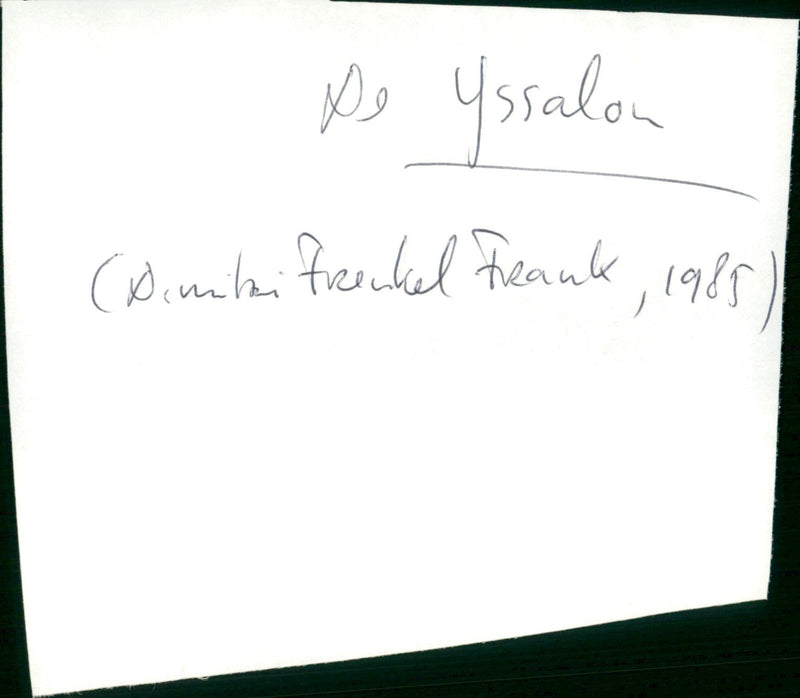 De Yssalon
(Dimitri Frenkel Frank, 1985)